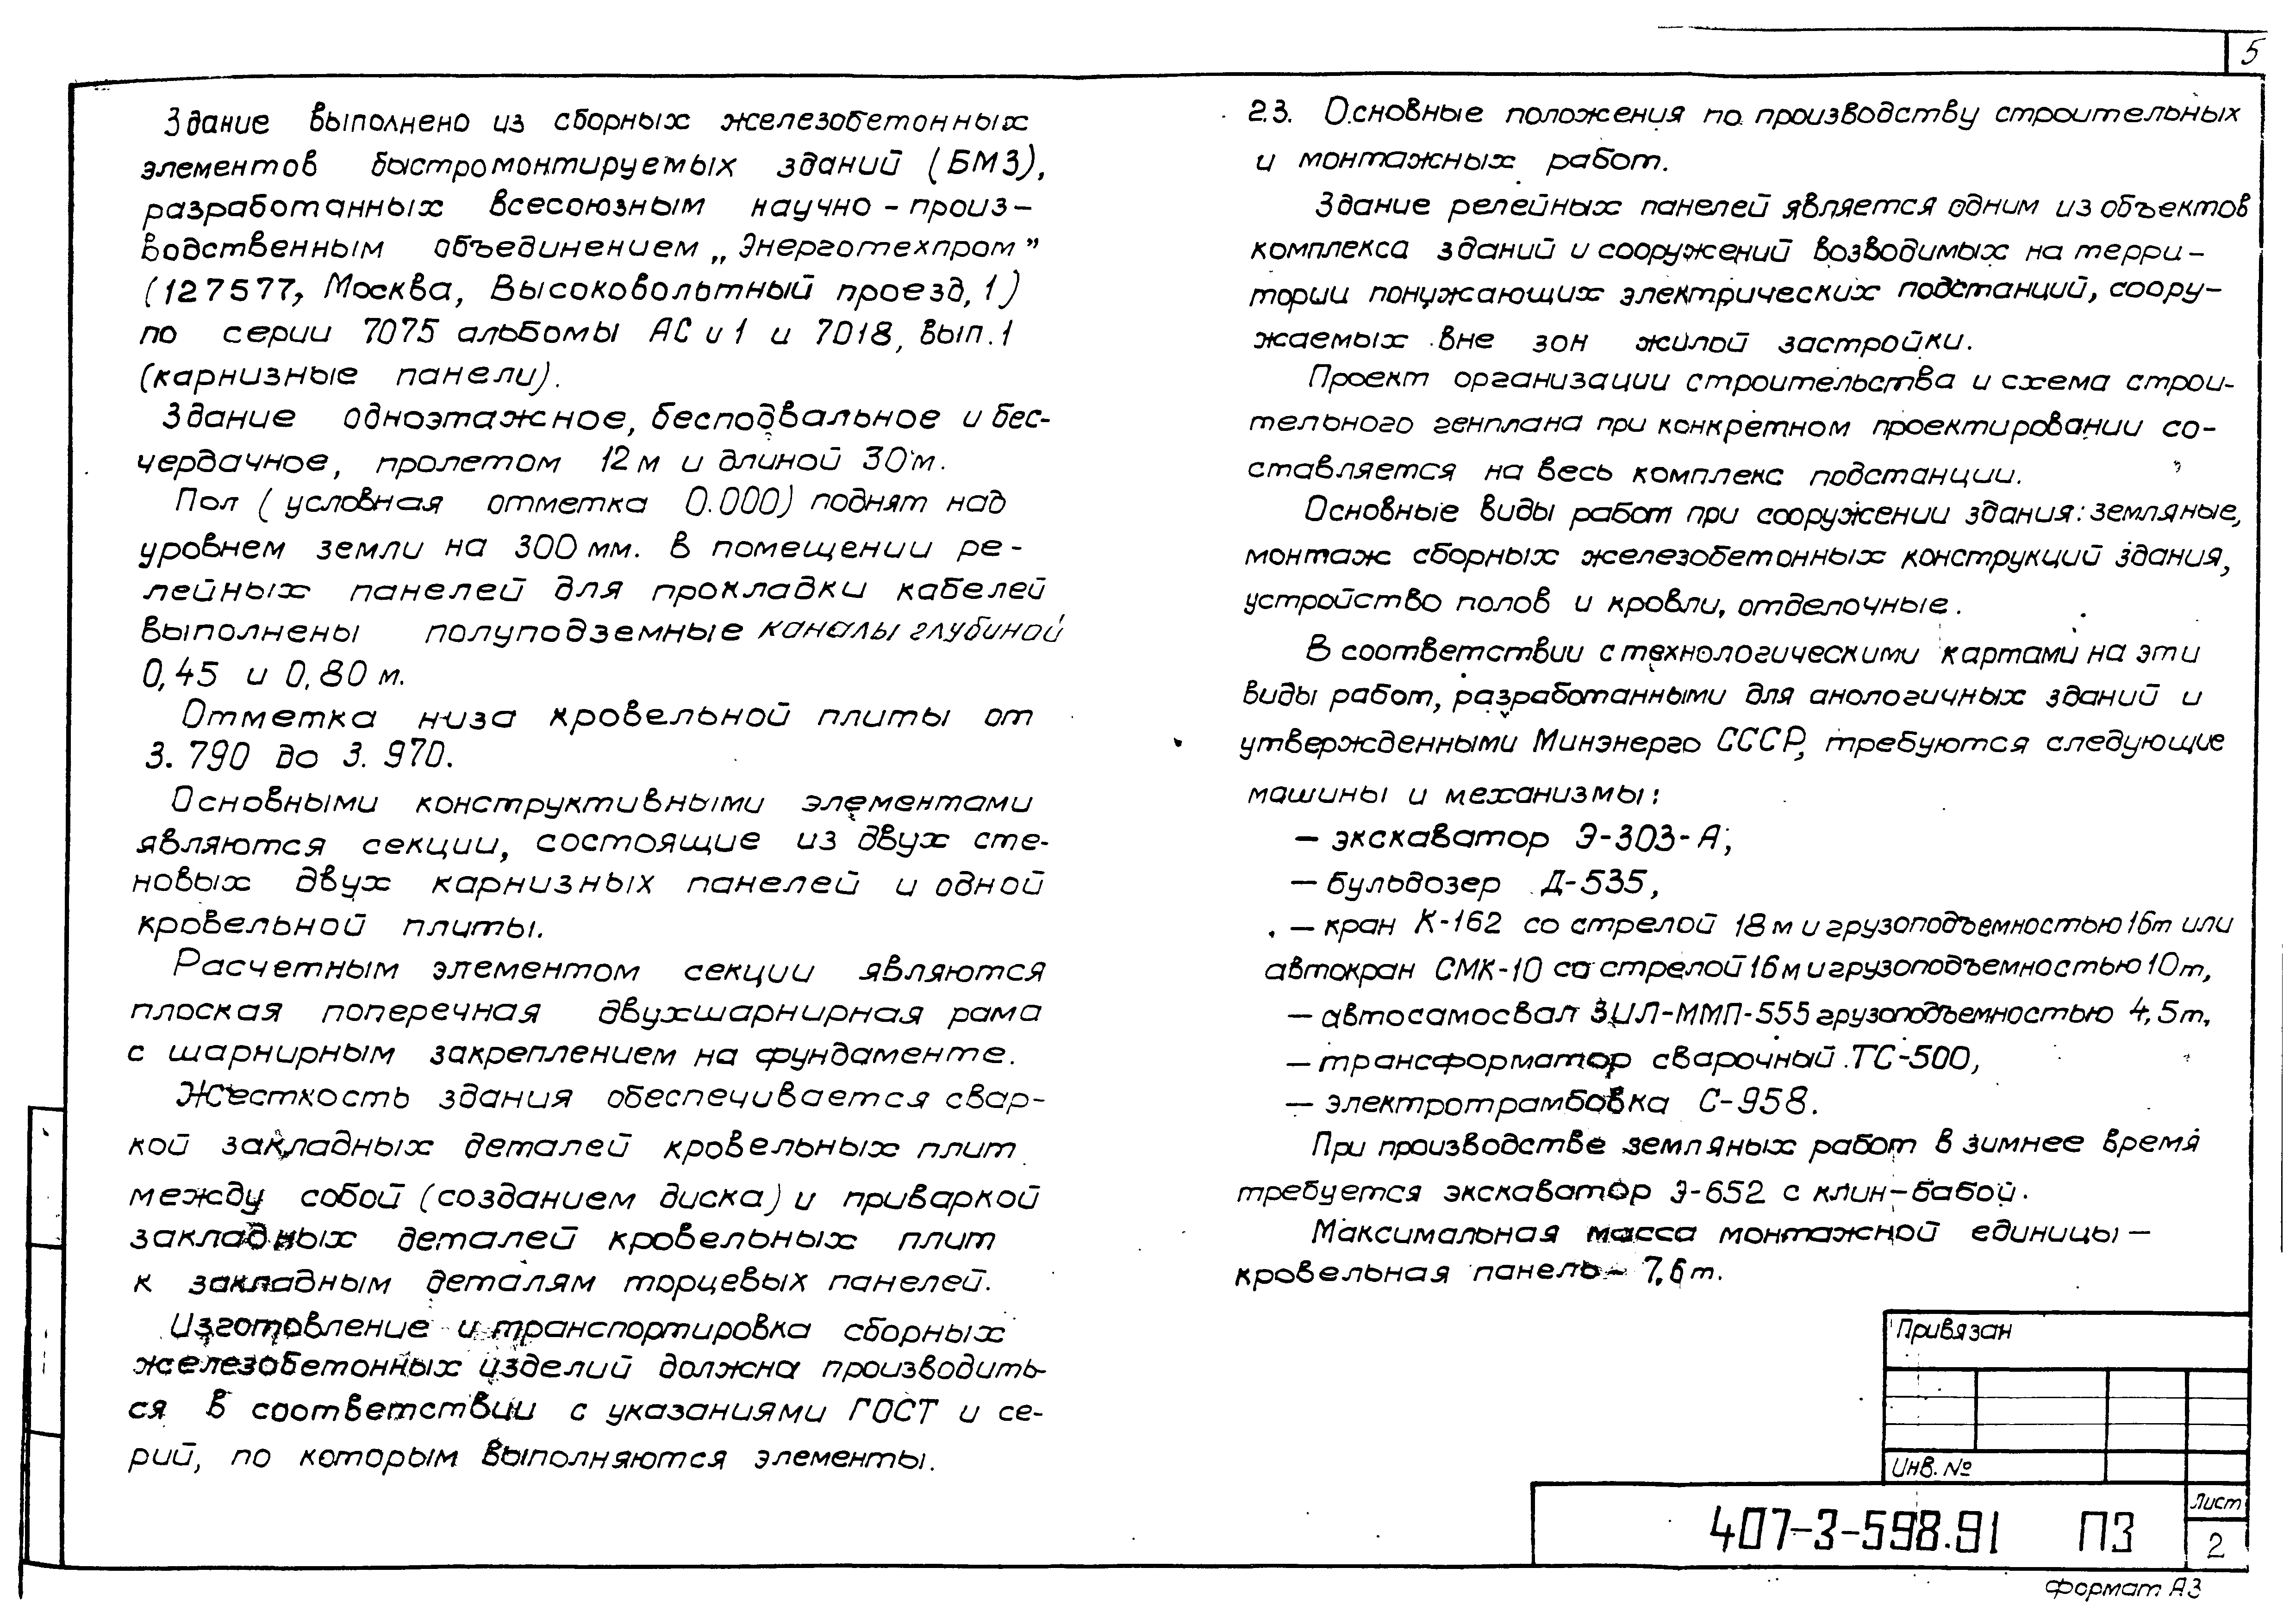 5
Здание выполнено из сборных железобетонных
элементов быстромонтируемых зданий (БМЗ),
разработанных всесоюзным научно - произ-
водственным объединением „Энерготехпром”
(127577, Москва, Высоковольтный проезд, 1)
по серии 7075 альбомы АС и 1 и 7018, вып. 1
(карнизные панели).
Здание одноэтажное, бесподвальное и бес-
чердачное, пролетом 12 м и длиной 30 м.
Пол (условная отметка 0.000) поднят над
уровнем земли на 300 мм. В помещении ре-
лейных панелей для прокладки кабелей
выполнены полуподземные каналы глубиной
0,45 и 0,80 м.
Отметка низа кровельной плиты от
3.790 до 3.970.
Основными конструктивными элементами
являются секции, состоящие из двух сте-
новых двух карнизных панелей и одной
кровельной плиты.
Расчетным элементом секции являются
плоская поперечная двухшарнирная рама
с шарнирным закреплением на фундаменте.
Жесткость здания обеспечивается свар-
кой закладных деталей кровельных плит
между собой (созданием диска) и приваркой
закладных деталей кровельных плит
к закладным деталям торцевых панелей.
Изготовление и транспортировка сборных
железобетонных изделий должна производить-
ся в соответствии с указаниями ГОСТ и се-
рий, по которым выполняются элементы.
2.3. Основные положения по производству строительных
и монтажных работ.
Здание релейных панелей является одним из объектов
комплекса зданий и сооружений возводимых на терри-
тории понужающих электрических подстанций, соору-
жаемых вне зон жилой застройки.
Проект организации строительства и схема строи-
тельного генплана при конкретном проектировании со-
ставляется на весь комплекс подстанции.
Основные виды работ при сооружении здания: земляные,
монтаж сборных железобетонных конструкций здания,
устройство полов и кровли, отделочные.
В соответствии с технологическими картами на эти
виды работ, разработанными для анологичных зданий и
утвержденными Минэнерго СССР, требуются следующие
машины и механизмы:
— экскаватор Э-303-А;
— бульдозер Д-535,
— кран К-162 со стрелой 18 м и грузоподъемностью 16т или
автокран СМК-10 со стрелой 16 м и грузоподъемностью 10т,
— автосамосвал ЗИЛ-ММП-555 грузоподъемностью 4,5т,
— трансформатор сварочный ТС-500,
— электротрамбовка С-958.
При производстве земляных работ в зимнее время
требуется экскаватор Э-652 с клин-бабой.
Максимальная масса монтажной единицы —
кровельная панель — 7,6 т.
Привязан
Инв. №
407-3-598.91 ПЗ
Лист
2
Формат А3